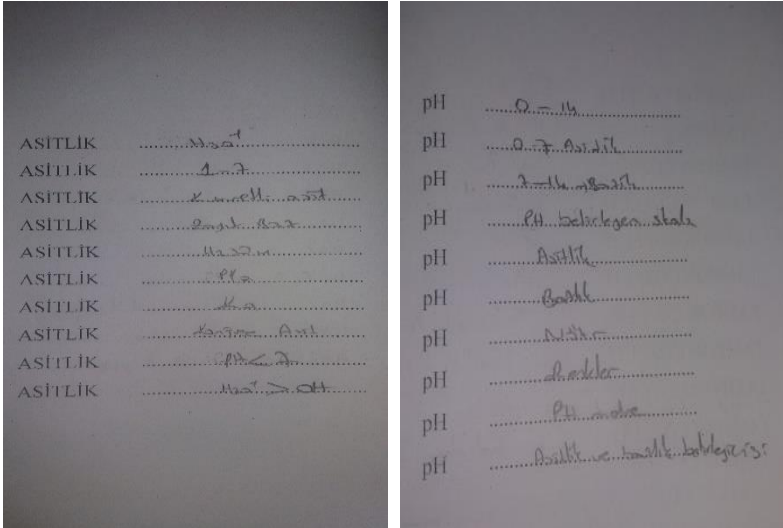 ASİTLİK H3O+
ASİTLİK 1-7
ASİTLİK Kuvvetli asit
ASİTLİK Zayıf Baz
ASİTLİK
ASİTLİK
ASİTLİK Ka
ASİTLİK
ASİTLİK PH < 7
ASİTLİK H3O+ > OH
pH 0-14
pH 0-7 Asidik
pH 7-14 Bazik
pH PH belirleyen skala
pH Asitlik
pH Bazlık
pH Nötr
pH Renkler
pH PH metre
pH Asitlik ve bazlık belirleyicisi